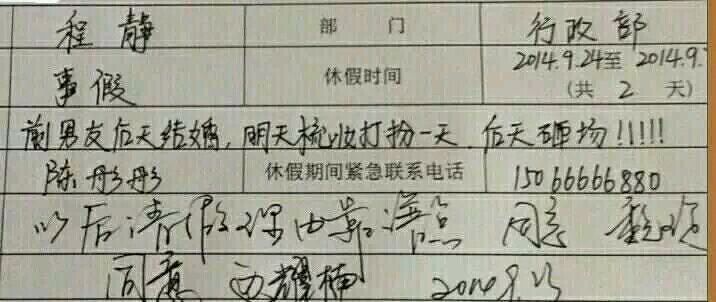 程静 部门 行政部
事假 休假时间 2014.9.24至 2014.9.
(共 2 天)
前男友后天结婚,明天梳妆打扮一天,后天砸场!!!!!
陈彤彤 休假期间紧急联系电话 15066666880
以后请假理由靠谱点 同意
同意 耀楠 2014.9.23